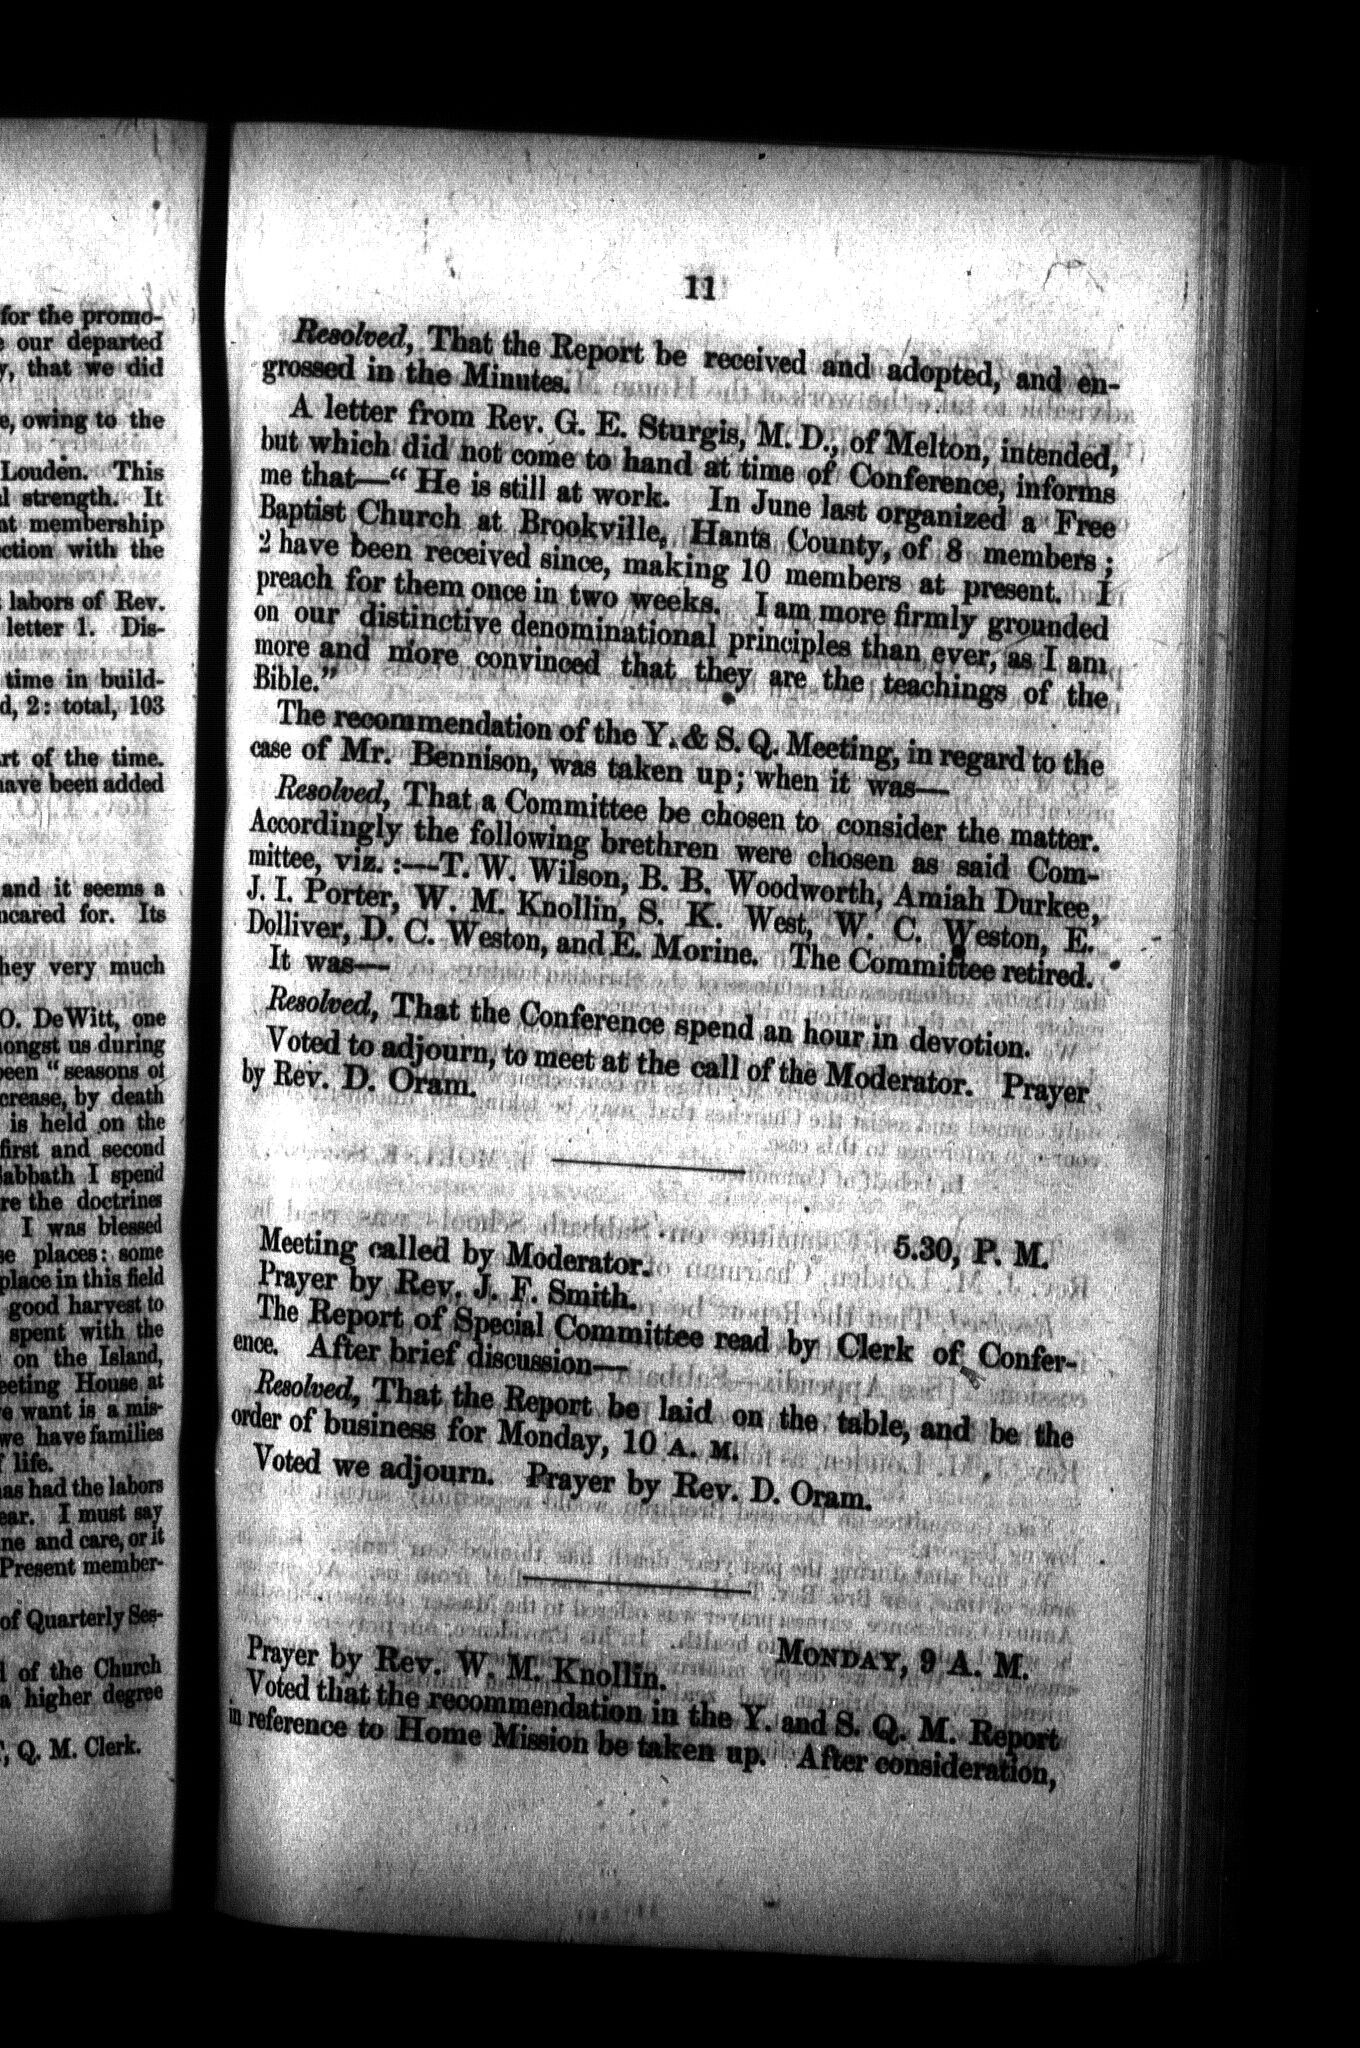 for the promo-
our departed
that we did
owing to the
Louden. This
strength. It
membership
with the
labors of Rev.
letter 1. Dis-
time in build-
2: total, 103
of the time.
have been added
and it seems a
for. Its
very much
O. DeWitt, one
us during
been "seasons of
by death
is held on the
first and second
Sabbath I spend
the doctrines
I was blessed
places: some
place in this field
good harvest to
spent with the
on the Island,
Meeting House at
want is a mis-
we have families
life.
has had the labors
I must say
and care, or it
Present member-
of Quarterly Ses-
of the Church
a higher degree
Q. M. Clerk.
11
Resolved, That the Report be received and adopted, and en-
grossed in the Minutes.
A letter from Rev. G. E. Sturgis, M. D., of Melton, intended,
but which did not come to hand at time of Conference, informs
me that—"He is still at work. In June last organized a Free
Baptist Church at Brookville, Hants County, of 8 members;
2 have been received since, making 10 members at present. I
preach for them once in two weeks. I am more firmly grounded
on our distinctive denominational principles than ever, as I am
more and more convinced that they are the teachings of the
Bible."
The recommendation of the Y. & S. Q. Meeting, in regard to the
case of Mr. Bennison, was taken up; when it was—
Resolved, That a Committee be chosen to consider the matter.
Accordingly the following brethren were chosen as said Com-
mittee, viz.:—T. W. Wilson, B. B. Woodworth, Amiah Durkee,
J. I. Porter, W. M. Knollin, S. K. West, W. C. Weston, E.
Dolliver, D. C. Weston, and E. Morine. The Committee retired.
It was—
Resolved, That the Conference spend an hour in devotion.
Voted to adjourn, to meet at the call of the Moderator. Prayer
by Rev. D. Oram.
5.30, P. M.
Meeting called by Moderator.
Prayer by Rev. J. F. Smith.
The Report of Special Committee read by Clerk of Confer-
ence. After brief discussion—
Resolved, That the Report be laid on the table, and be the
order of business for Monday, 10 A. M.
Voted we adjourn. Prayer by Rev. D. Oram.
MONDAY, 9 A. M.
Prayer by Rev. W. M. Knollin.
Voted that the recommendation in the Y. and S. Q. M. Report
in reference to Home Mission be taken up. After consideration,